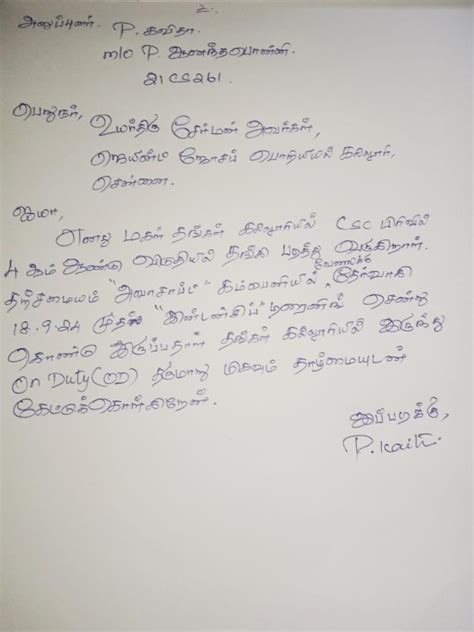 உ
அனுப்புனர்,
P. கவிதா.
m/o P. ஆனந்தபொன்னி.
21CS261.
பெறுநர்,
உயர்திரு சேர்மன் அவர்கள்,
ஜெயின்ட் ஜோசப் பொறியியல் கல்லூரி,
சென்னை.
ஐயா,
எனது மகள் தங்கள் கல்லூரியில் CSC பிரிவில்
4 ஆம் ஆண்டு விடுதியில் தங்கி படித்து வருகிறாள்.
தற்சமயம் " " கம்பெனியில் வேலைக்கு தேர்வாகி
18.9.24 முதல் "இன்டன்சிப்" டிரைனிங் சென்று
கொண்டு இருப்பதால் தங்கள் கல்லூரியில் இருந்து
On Duty (OD) தருமாறு மிகவும் தாழ்மையுடன்
கேட்டுக்கொள்கிறேன்.
இப்படிக்கு,